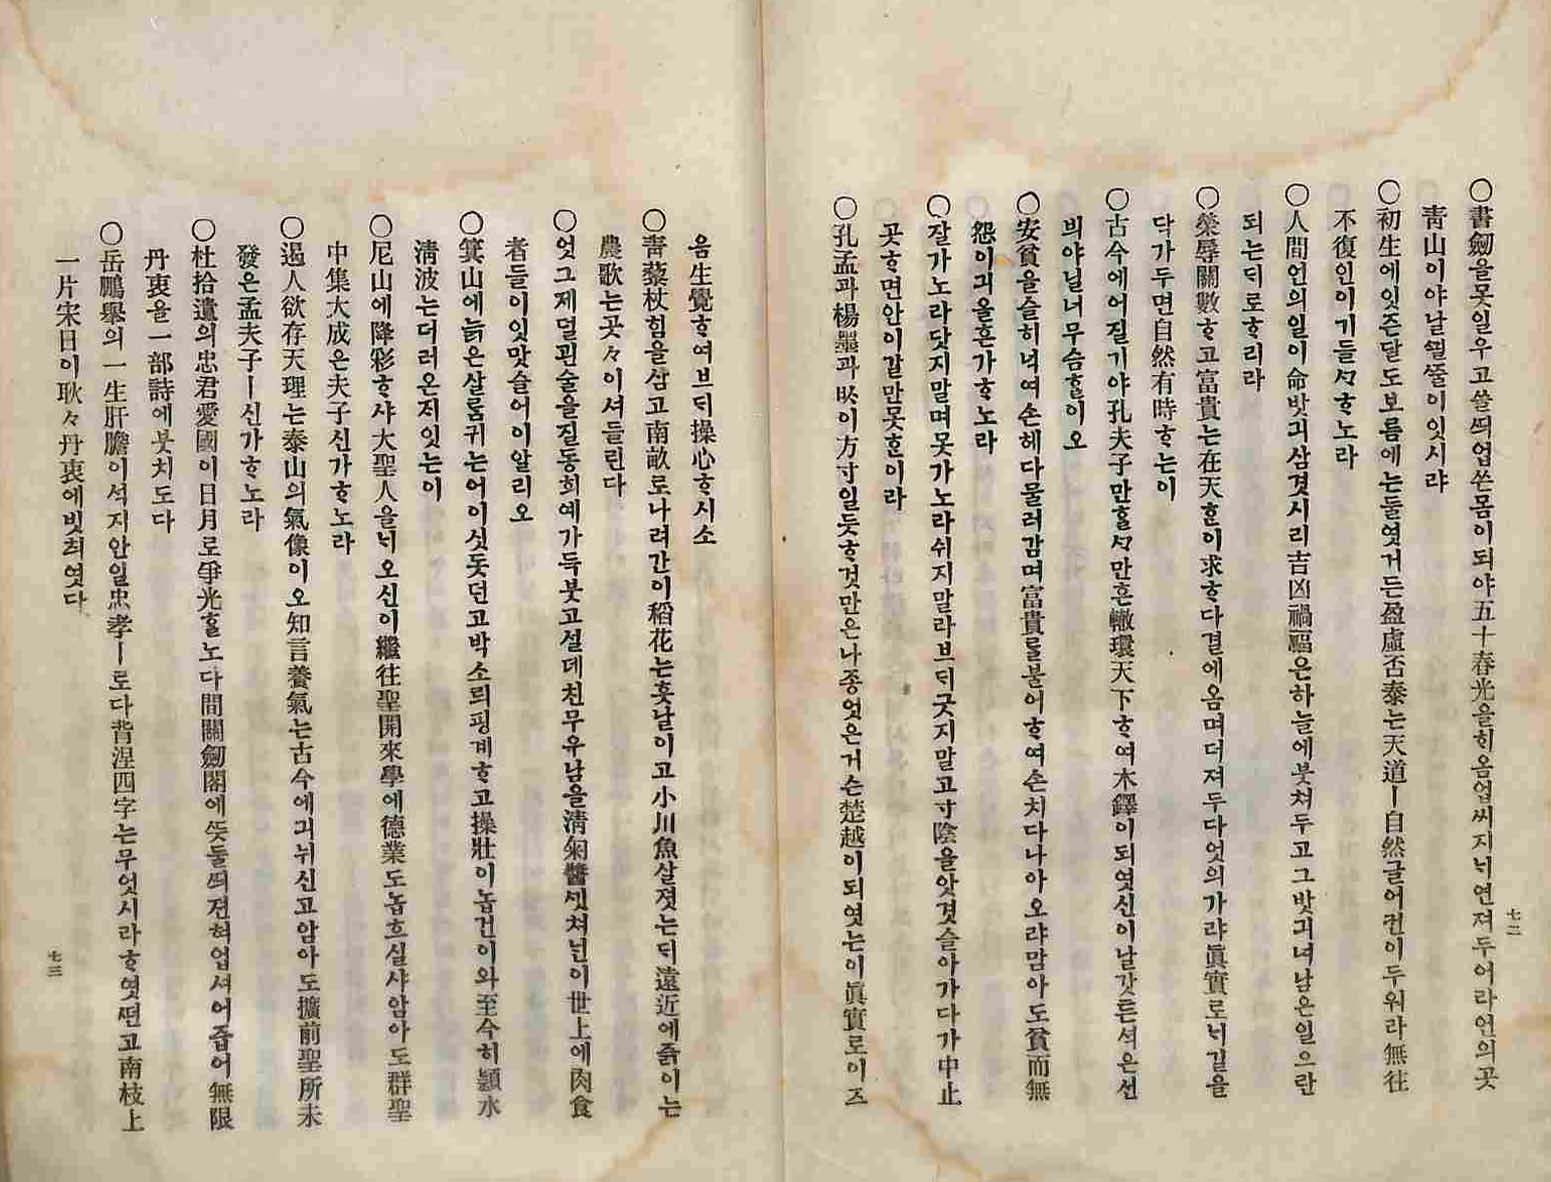 ○書劒을못일우고쓸ᄯᅴ업쓴몸이되야五十春光을ᄒᆡ옴업씨지ᄂᆡ연져두어라언의곳
靑山이야날ᄭᅴᆯ쭐이잇시랴
○初生에잇즌달도보름에는둘엿거든盈虛否泰는天道ㅣ自然글어ᄒᆞᆫ이두워라無往
不復인이기들ᄭᅥᄒᆞ노라
○人間언의일이命밧긔삼겻시리吉凶禍福은하늘에붓쳐두고그밧긔녀남은일으란
되는ᄃᆡ로ᄒᆞ리라
○榮辱關數ᄒᆞ고富貴는在天ᄒᆞᆫ이求ᄒᆞ다결에옴며더져두다엇의가랴眞實로ᄂᆡ길을
닥가두면自然有時ᄒᆞ는이
○古今에어질기야孔夫子만ᄒᆞᆯᄭᅥ만흔轍環天下ᄒᆞ여木鐸이되엿신이날갓튼셔은션
븨야닐너무슴ᄒᆞᆯ이오
○安貧을슬히녁여손헤다물러감며富貴를불어ᄒᆞ여손치다나아오랴맘아도貧而無
怨이긔올흔가ᄒᆞ노라
○잘가노라닷지말며못가노라쉬지말라브ᄃᆡ긋지말고寸陰을앗겻슬아가다가中止
곳ᄒᆞ면안이갈만못ᄒᆞᆫ이라
○孔孟과楊墨과ᄡᅡᆺ이方寸일듯ᄒᆞ것만은나죵엇은거슨楚越이되엿는이眞實로이즈
七二
옴生覺ᄒᆞ여브ᄃᆡ操心ᄒᆞ시소
○靑藜杖힘을삼고南畝로나려간이稻花는훗날이고小川魚살졋는ᄃᆡ遠近에즑이는
農歌는곳々이셔들린다
○엇그제덜괸술을질동희예가득붓고설데친무우남을淸匊醬ᄭᅵᆺ쳐닌이世上에肉食
者들이잇맛슬어이알리오
○箕山에늙은살ᄅᆞᆷ귀는어이싯돗던고박소ᄅᆡ핑계ᄒᆞ고操壯이놉건이와至今히潁水
淸波는더러온ᄌᆡ잇는이
○尼山에降彩ᄒᆞ샤大聖人을ᄂᆡ오신이繼往聖開來學에德業도놉흐실샤암아도群聖
中集大成은夫子신가ᄒᆞ노라
○遏人欲存天理는泰山의氣像이오知言養氣는古今에긔뉘신고암아도擴前聖所未
發은孟夫子ㅣ신가ᄒᆞ노라
○杜拾遺의忠君愛國이日月로爭光ᄒᆞᆯ노다間關劒閣에ᄯᅳᆺ둘ᄯᅴ젼혀업셔어즙어無限
丹衷을一部詩에붓치도다
○岳鵬擧의一生肝膽이석지안일忠孝ㅣ로다背涅四字는무엇시라ᄒᆞ엿ᄯᅥᆫ고南枝上
一片宋日이耿々丹衷에빗최엿다
七三